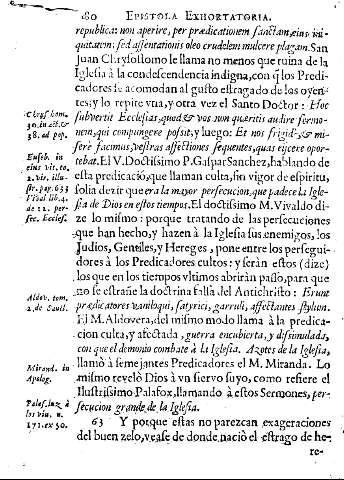 180 EPISTOLA EXHORTATORIA.
republica: non aperire, per prædicationem sanctam, eius ini-
quitatem: sed assentationis oleo crudelem mulcere plagam. San
Juan Chrysostomo le llama no menos que ruina de la
Iglesia à la condescendencia indigna, con q̃ los Predi-
cadores se acomodan al gusto estragado de los oyen-
tes; y lo repite vna, y otra vez el Santo Doctor: Hoc
subvertit Ecclesias, quod & vos non quæritis audire sermo-
nem, qui compungere possit; y luego: Et nos frigidè, & mi-
serè facimus, vestras affectiones sequentes, quas eijcere opor-
tebat. El V. Doctissimo P. Gaspar Sanchez, hablando de
esta predicaciõ, que llaman culta, sin vigor de espiritu,
solia dezir que era la mayor persecucion, que padece la Igle-
sia de Dios en estos tiempos. El doctissimo M. Vivaldo di-
ze lo mismo: porque tratando de las persecuciones
que han hecho, y hazen à la Iglesia sus enemigos, los
Judios, Gentiles, y Hereges, pone entre los persegui-
dores à los Predicadores cultos: y serán estos (dize)
los que en los tiempos vltimos abrirán passo, para que
no se estrañe la doctrina falsa del Antichristo: Erunt
prædicatores vaniloqui, satyrici, garruli, affectantes stylum.
El M. Aldovera, del mismo modo llama à la predica-
cion culta, y afectada, guerra encubierta, y disimulada,
con que el demonio combate à la Iglesia. Azotes de la Iglesia,
llamò à semejantes Predicadores el M. Miranda. Lo
mismo revelò Dios à vn siervo suyo, como refiere el
Ilustrissimo Palafox, llamando à estos Sermones, per-
secucion grande de la Iglesia.
63 Y porque estas no parezcan exageraciones
del buen zelo, vease de donde naciò el estrago de he-
re-
Chrys. hom.
30. in act. &
38. ad pop.
Euseb. in
eius vit. to.
2. vir. illu-
str. pag. 633
Vival lib. 4.
de 12. per-
sec. Eccles.
Aldov. tom.
2. de Sanct.
Mirand. in
Apolog.
Palaf. luz à
los viv. n.
171. ex 50.